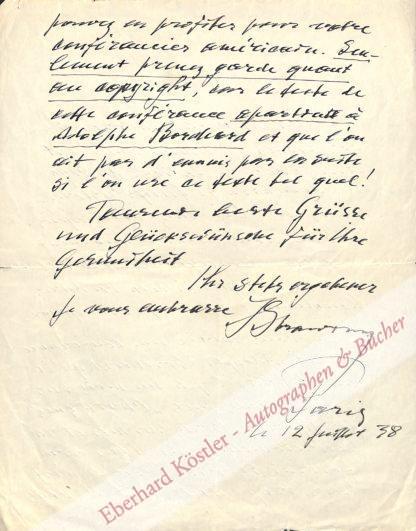 pouvez en profiter pour votre
conférencier américain. Seu-
lement prenez garde quant
au copyright, car le texte de
cette conférence apartient à
Adolphe Borchard et que l'on
ait pas d'ennuis par la suite
si l'on use ce texte tel quel!
Tausende beste Grüsse
und Glückwünsche für Ihre
Gesundheit
Ihr stets ergebener
Je vous embrasse IStrawinsky
Paris
le 12 Juillet 38
Eberhard Köstler - Autographen & Bücher